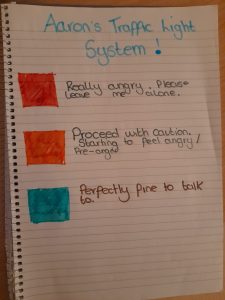 Aaron's Traffic Light
System!
Really angry. Please
leave me alone.
Proceed with caution.
Starting to feel angry/
Pre-anger
Perfectly fine to talk
to.